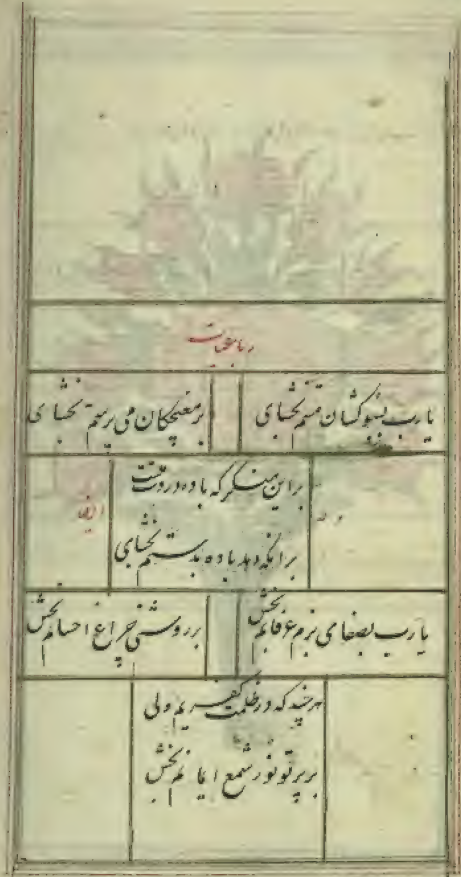 رباعیات
یارب بسبوکشان مستم بخشای
بر مغبچکان می پرستم بخشای
براین منگر که باده در دستم نیست
برانکه دهد باده بدستم بخشای
وله
ایضا
یارب بصفای بزم عرفانم بخش
بر روشنی چراغ احسانم بخش
هر چند که در ظلمت کفریم ولی
بر پرتو نور شمع ایمانم بخش